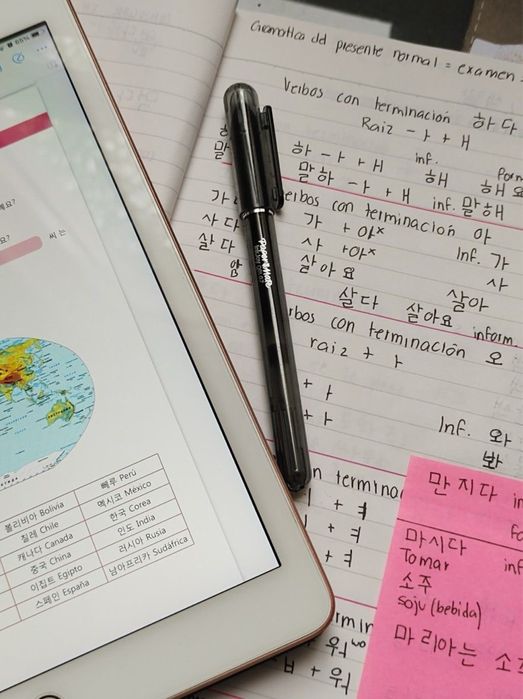 65%
요?
요? 씨는
볼리비아 Bolivia
칠레 Chile
캐나다 Canada
중국 China
이집트 Egipto
스페인 España
뻬루 Perú
멕시코 México
한국 Corea
인도 India
러시아 Rusia
남아프리카 Sudáfrica
Paper Mate
Gramatica del presente normal = examen
Verbos con terminación 하다
Raiz - ㅏ + ㅐ
하 - ㅏ + ㅐ inf. 해 해요
말하 - ㅏ + ㅐ inf. 말해
verbos con terminación 아
가 + 아× Inf. 가
사다 사 + 아× 사
살다 살아요
살다 살아요 살아
inform
rbos con terminación 오
raiz + ㅏ
+ ㅏ Inf. 와
+ ㅏ 봐
n termina
+ ㅕ
+ ㅕ
+ ㅕ
rmin
+ 워
+ 워
만지다 in
Fo
마시다 inf
Tomar
소주
soju (bebida)
마리아는 소